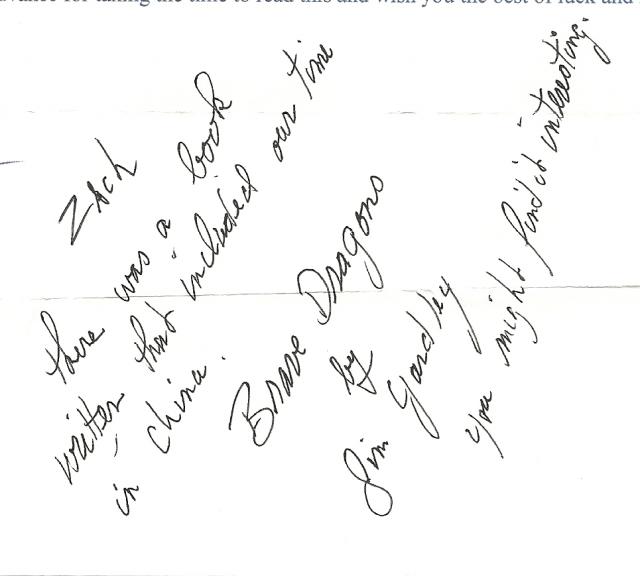 dvance for taking the time to read this and wish you the best of luck and
Zach
there was a book
written that included our time
in china.
Brave Dragons
by
Jim Yardley
you might find it interesting.